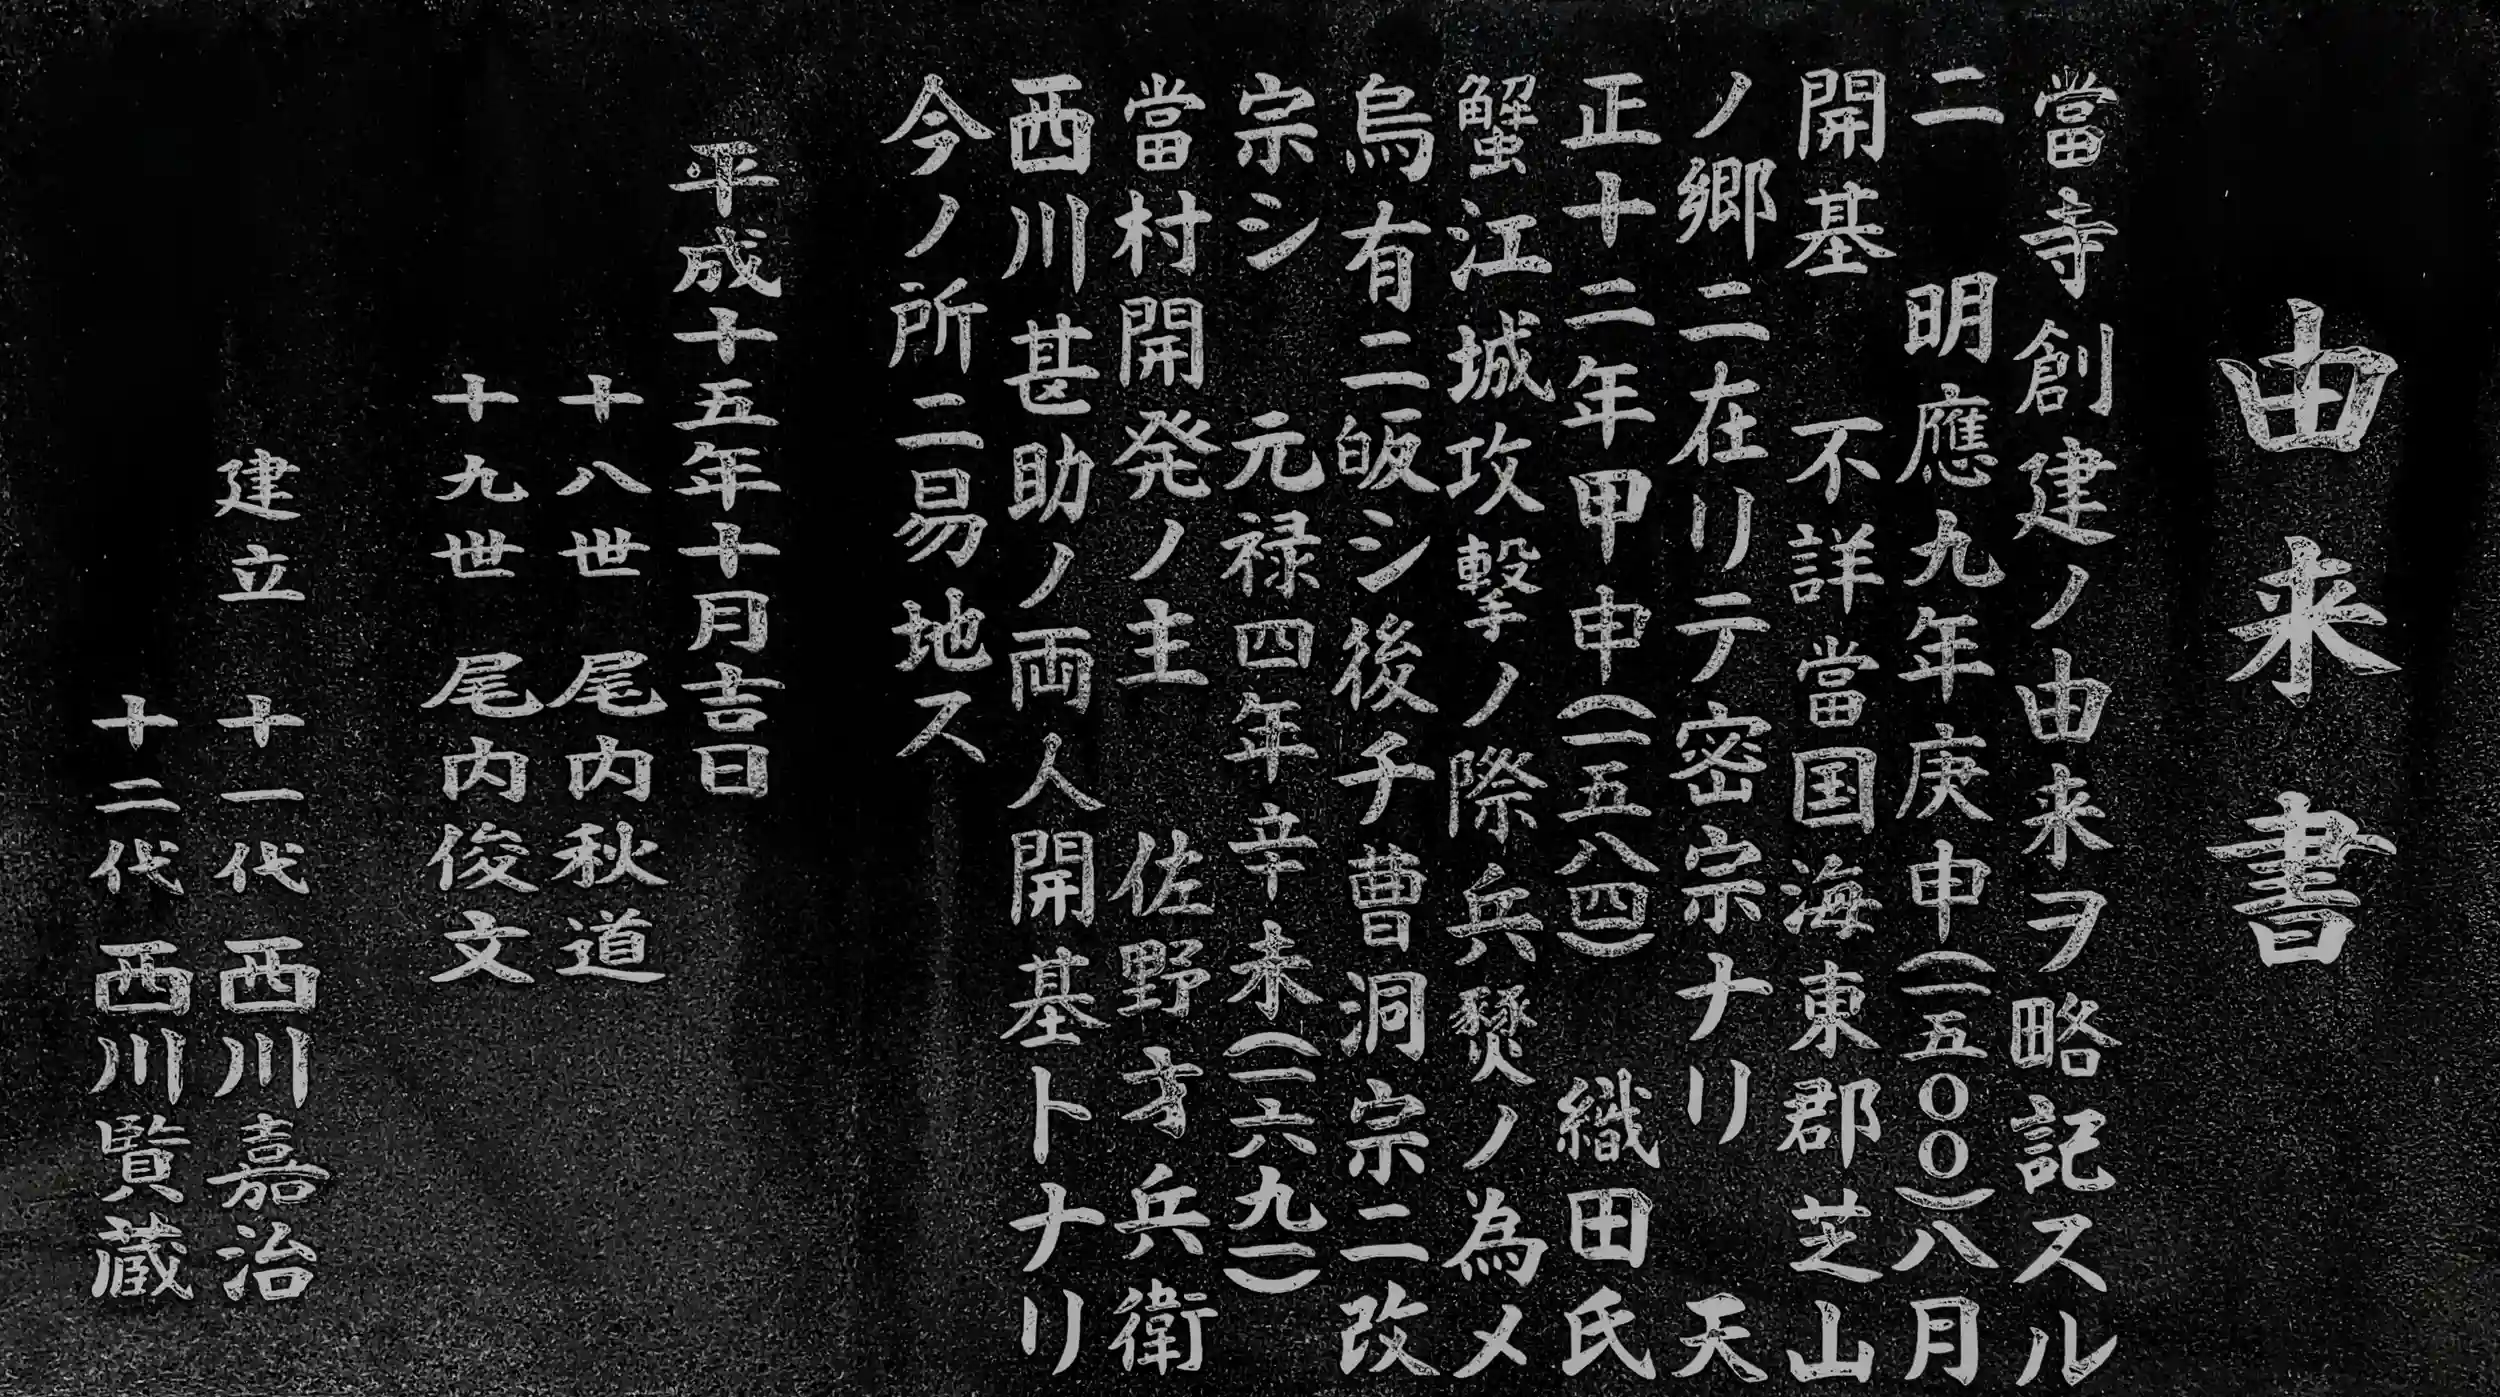 由来書
當寺創建ノ由来ヲ略記スル
ニ　明應九年庚申(一五〇〇)八月
開基　不詳當国海東郡芝山
ノ郷ニ在リテ密宗ナリ　天
正十二年甲申(一五八四)　織田氏
蟹江城攻撃ノ際兵燹ノ為メ
烏有ニ皈シ後チ曹洞宗ニ改
宗シ　元禄四年辛未(一六九一)
當村開発ノ主　佐野才兵衛
西川甚助ノ両人開基トナリ
今ノ所ニ易地ス
平成十五年十月吉日
十八世　尾内秋道
十九世　尾内俊文
建立　十一代　西川嘉治
十二代　西川賢蔵